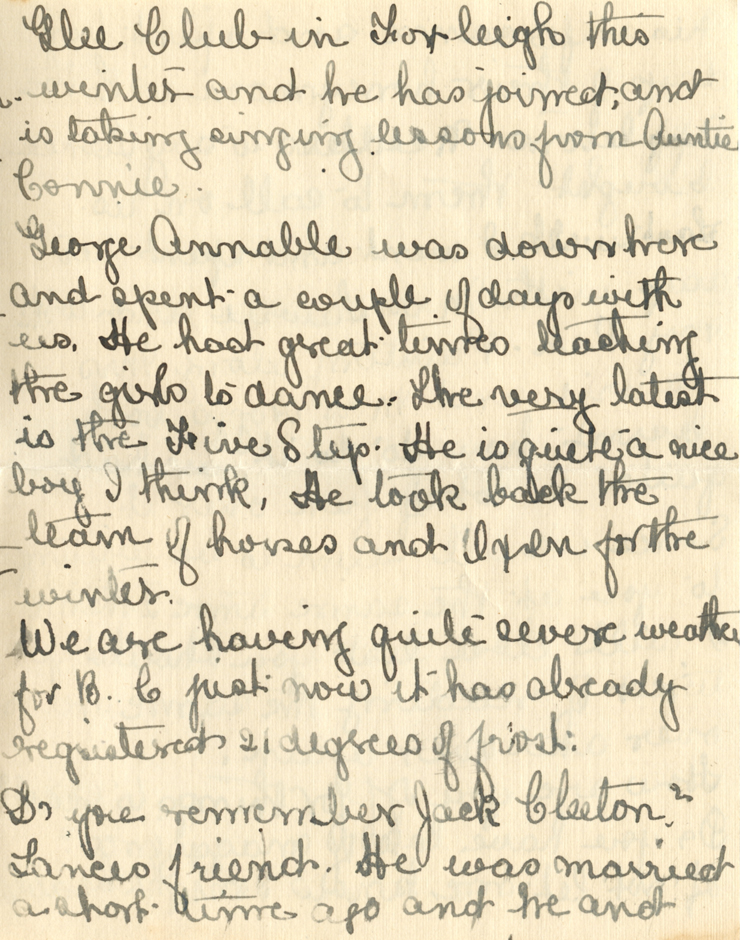 Glee Club in Foxleigh this
winter and he has joined, and
is taking singing lessons from Auntie
Connie.
George Annable was down here
and spent a couple of days with
us. He had great times teaching
the girls to dance. The very latest
is the Five Step. He is quite a nice
boy I think, He took back the
team of horses and for the
winter.
We are having quite severe weather
for B. C just now it has already
registered 21 degrees of frost.
Do you remember Jack Cleeton?
Lances friend. He was married
a short time ago and he and